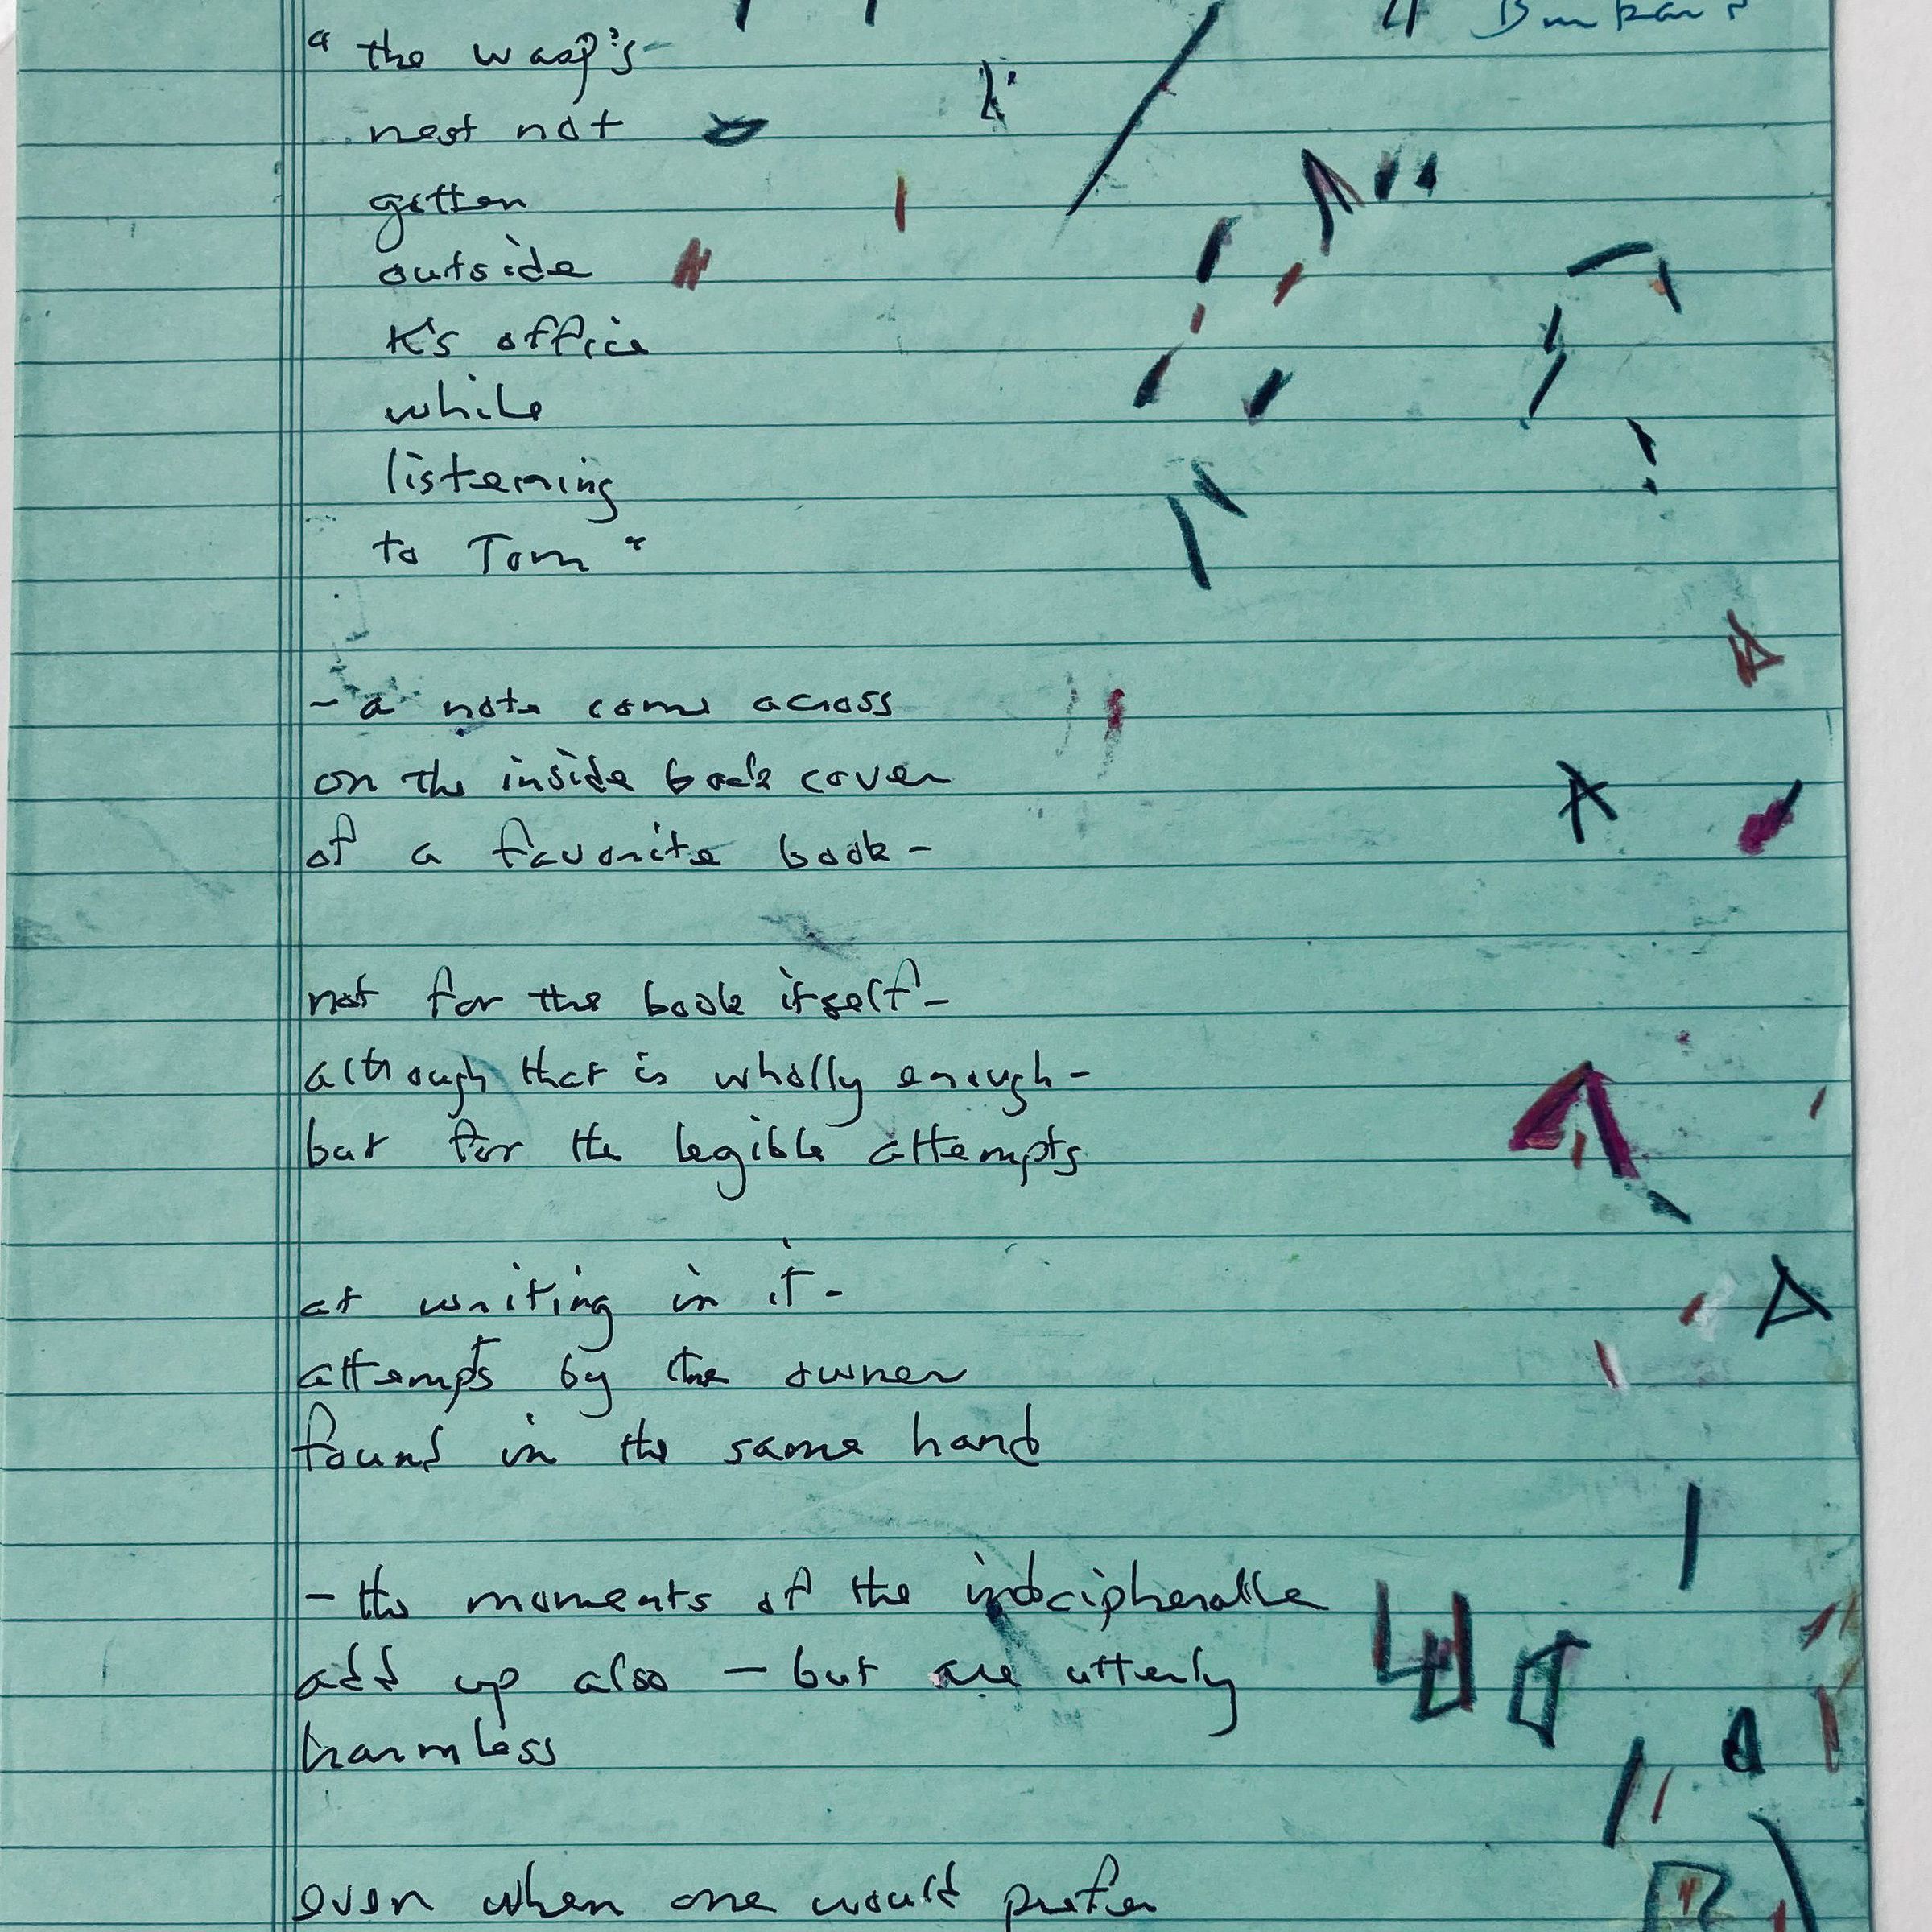 "the wasp's-
nest not
gotten
outside
K's office
while
listening
to Tom"
- a note come across
on the inside back cover
of a favorite book -
not for the book itself -
although that is wholly enough -
but for the legible attempts
at writing in it -
attempts by the owner
found in the same hand
- the moments of the indecipherable
add up also - but are utterly
harmless
even when one would prefer